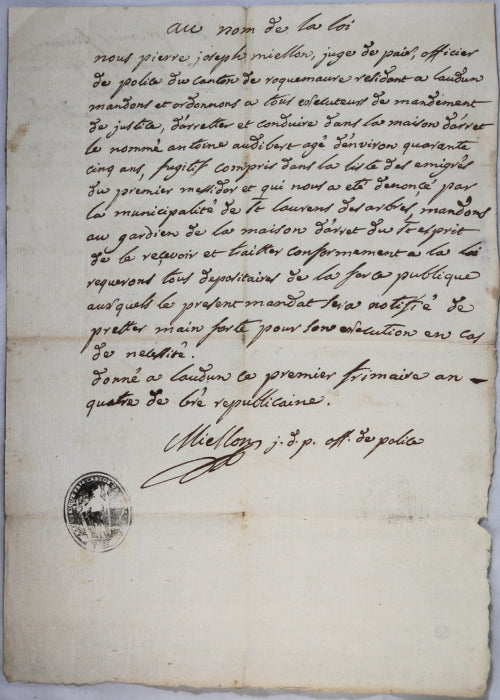 au nom de la loi
nous pierre, joseph miellon, juge de paix, officier
de police du canton de roquemaure residant a laudun
mandons et ordonnons a tous executeurs de mandement
de justice, d'arretter et conduire dans la maison d'arret
le nommé antoine audibert agé d'environ quarante
cinq ans, fugitif compris dans la liste des emigrés
du premier messidor et qui nous a eté denoncé par
la municipalité de St laurens des arbres, mandons
au gardien de la maison d'arret du St esprit
de le reçevoir et traitter conformement a la loi
requerons tous depositaires de la force publique
auxquels le present mandat sera notifié de
pretter main forte pour son execution en cas
de necessité.
donné a laudun ce premier frimaire an
quatre de l'ére republicaine.
Miellon j. d. p. off. de police